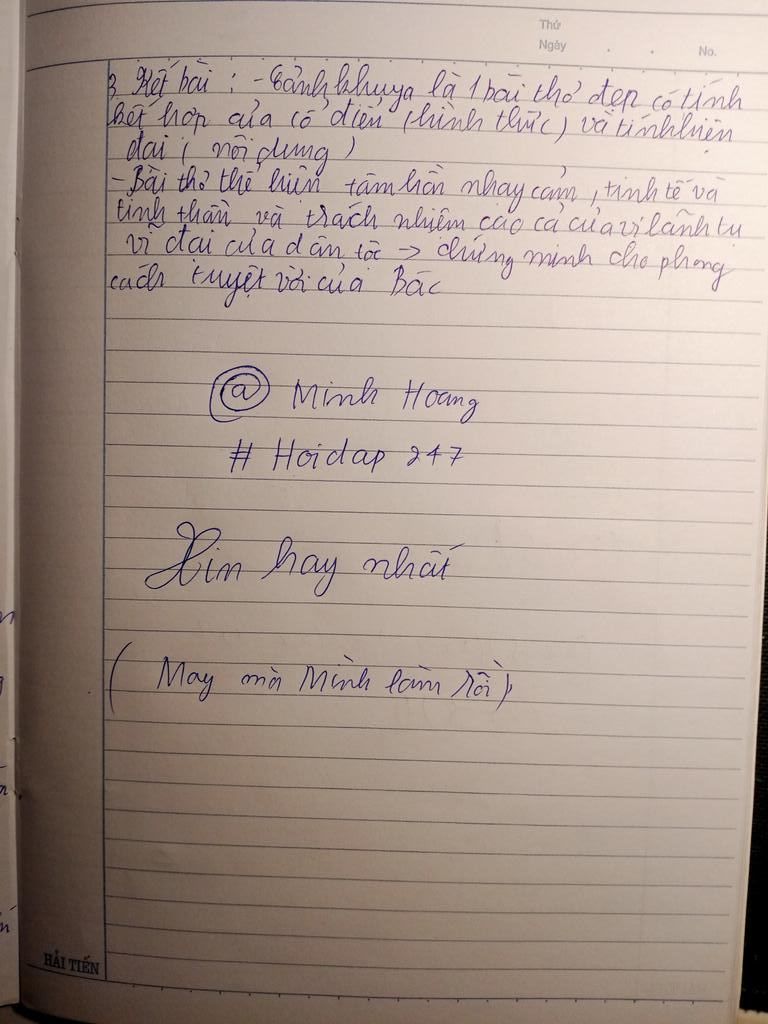 Thứ
Ngày . . No.
3 Kết bài : - Cảnh khuya là 1 bài thơ đẹp có tính
kết hợp của cổ điển (hình thức) và tính hiện
đại ( nội dung )
- Bài thơ thể hiện tâm hồn nhạy cảm, tinh tế và
tinh thần và trách nhiệm cao cả của vị lãnh tụ
vĩ đại của dân tộc → chứng minh cho phong
cách tuyệt vời của Bác
@ Minh Hoang
# Hoidap 247
Xin hay nhất
( May mà Mình làm rồi )
HẢI TIẾN